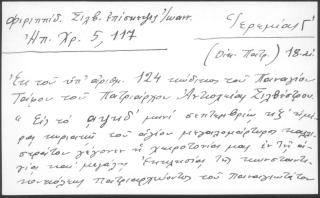 Φιλιππιδ. Σιλβ. ἐπίσκεψις Ἰωαν.
Ἠπ. Χρ. 5, 117
Ἱερεμίας Γ'
(Οἰκ. Πατρ.) 18.
Ἐκ τοῦ ὑπ' ἀριθμ. 124 κώδικος τοῦ Παναγίου
Τάφου τοῦ Πατριάρχου Ἀντιοχείας Σιλβέστρου.
"Εἰς τὸ αψκδ' μηνὶ σεπτεμβρίῳ κζ' ἡμέ-
ρας κυριακῇ τοῦ ἁγίου μεγαλομάρτυρος καλλι-
στράτου γέγονεν ἡ χειροτονία μας ἐν τῇ ἁ-
γίᾳ καὶ μεγάλῃ Ἐκκλησίᾳ τῆς κωνσταντι-
νουπόλεως πατριαρχεύοντος τοῦ παναγιωτάτου